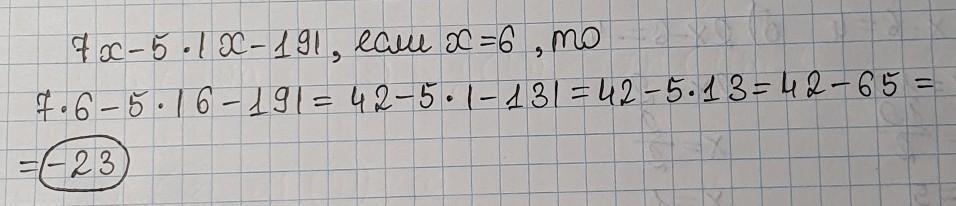 7x-5·|x-19|, если x=6, то
7·6-5·|6-19|=42-5·|-13|=42-5·13=42-65=
=-23